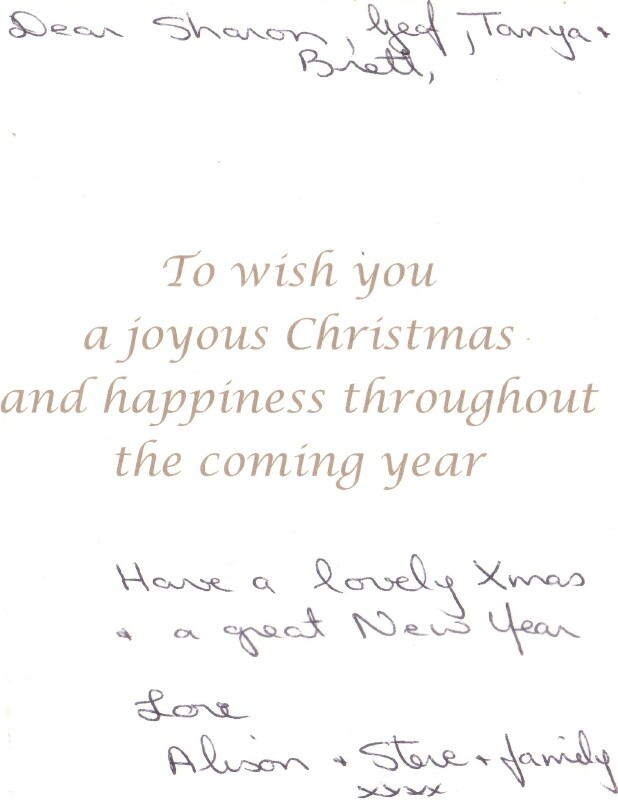 Dear Sharon, Geof, Tanya +
Brett,
To wish you
a joyous Christmas
and happiness throughout
the coming year
Have a lovely Xmas
+ a great New Year
Love
Alison + Steve + family
xxxx